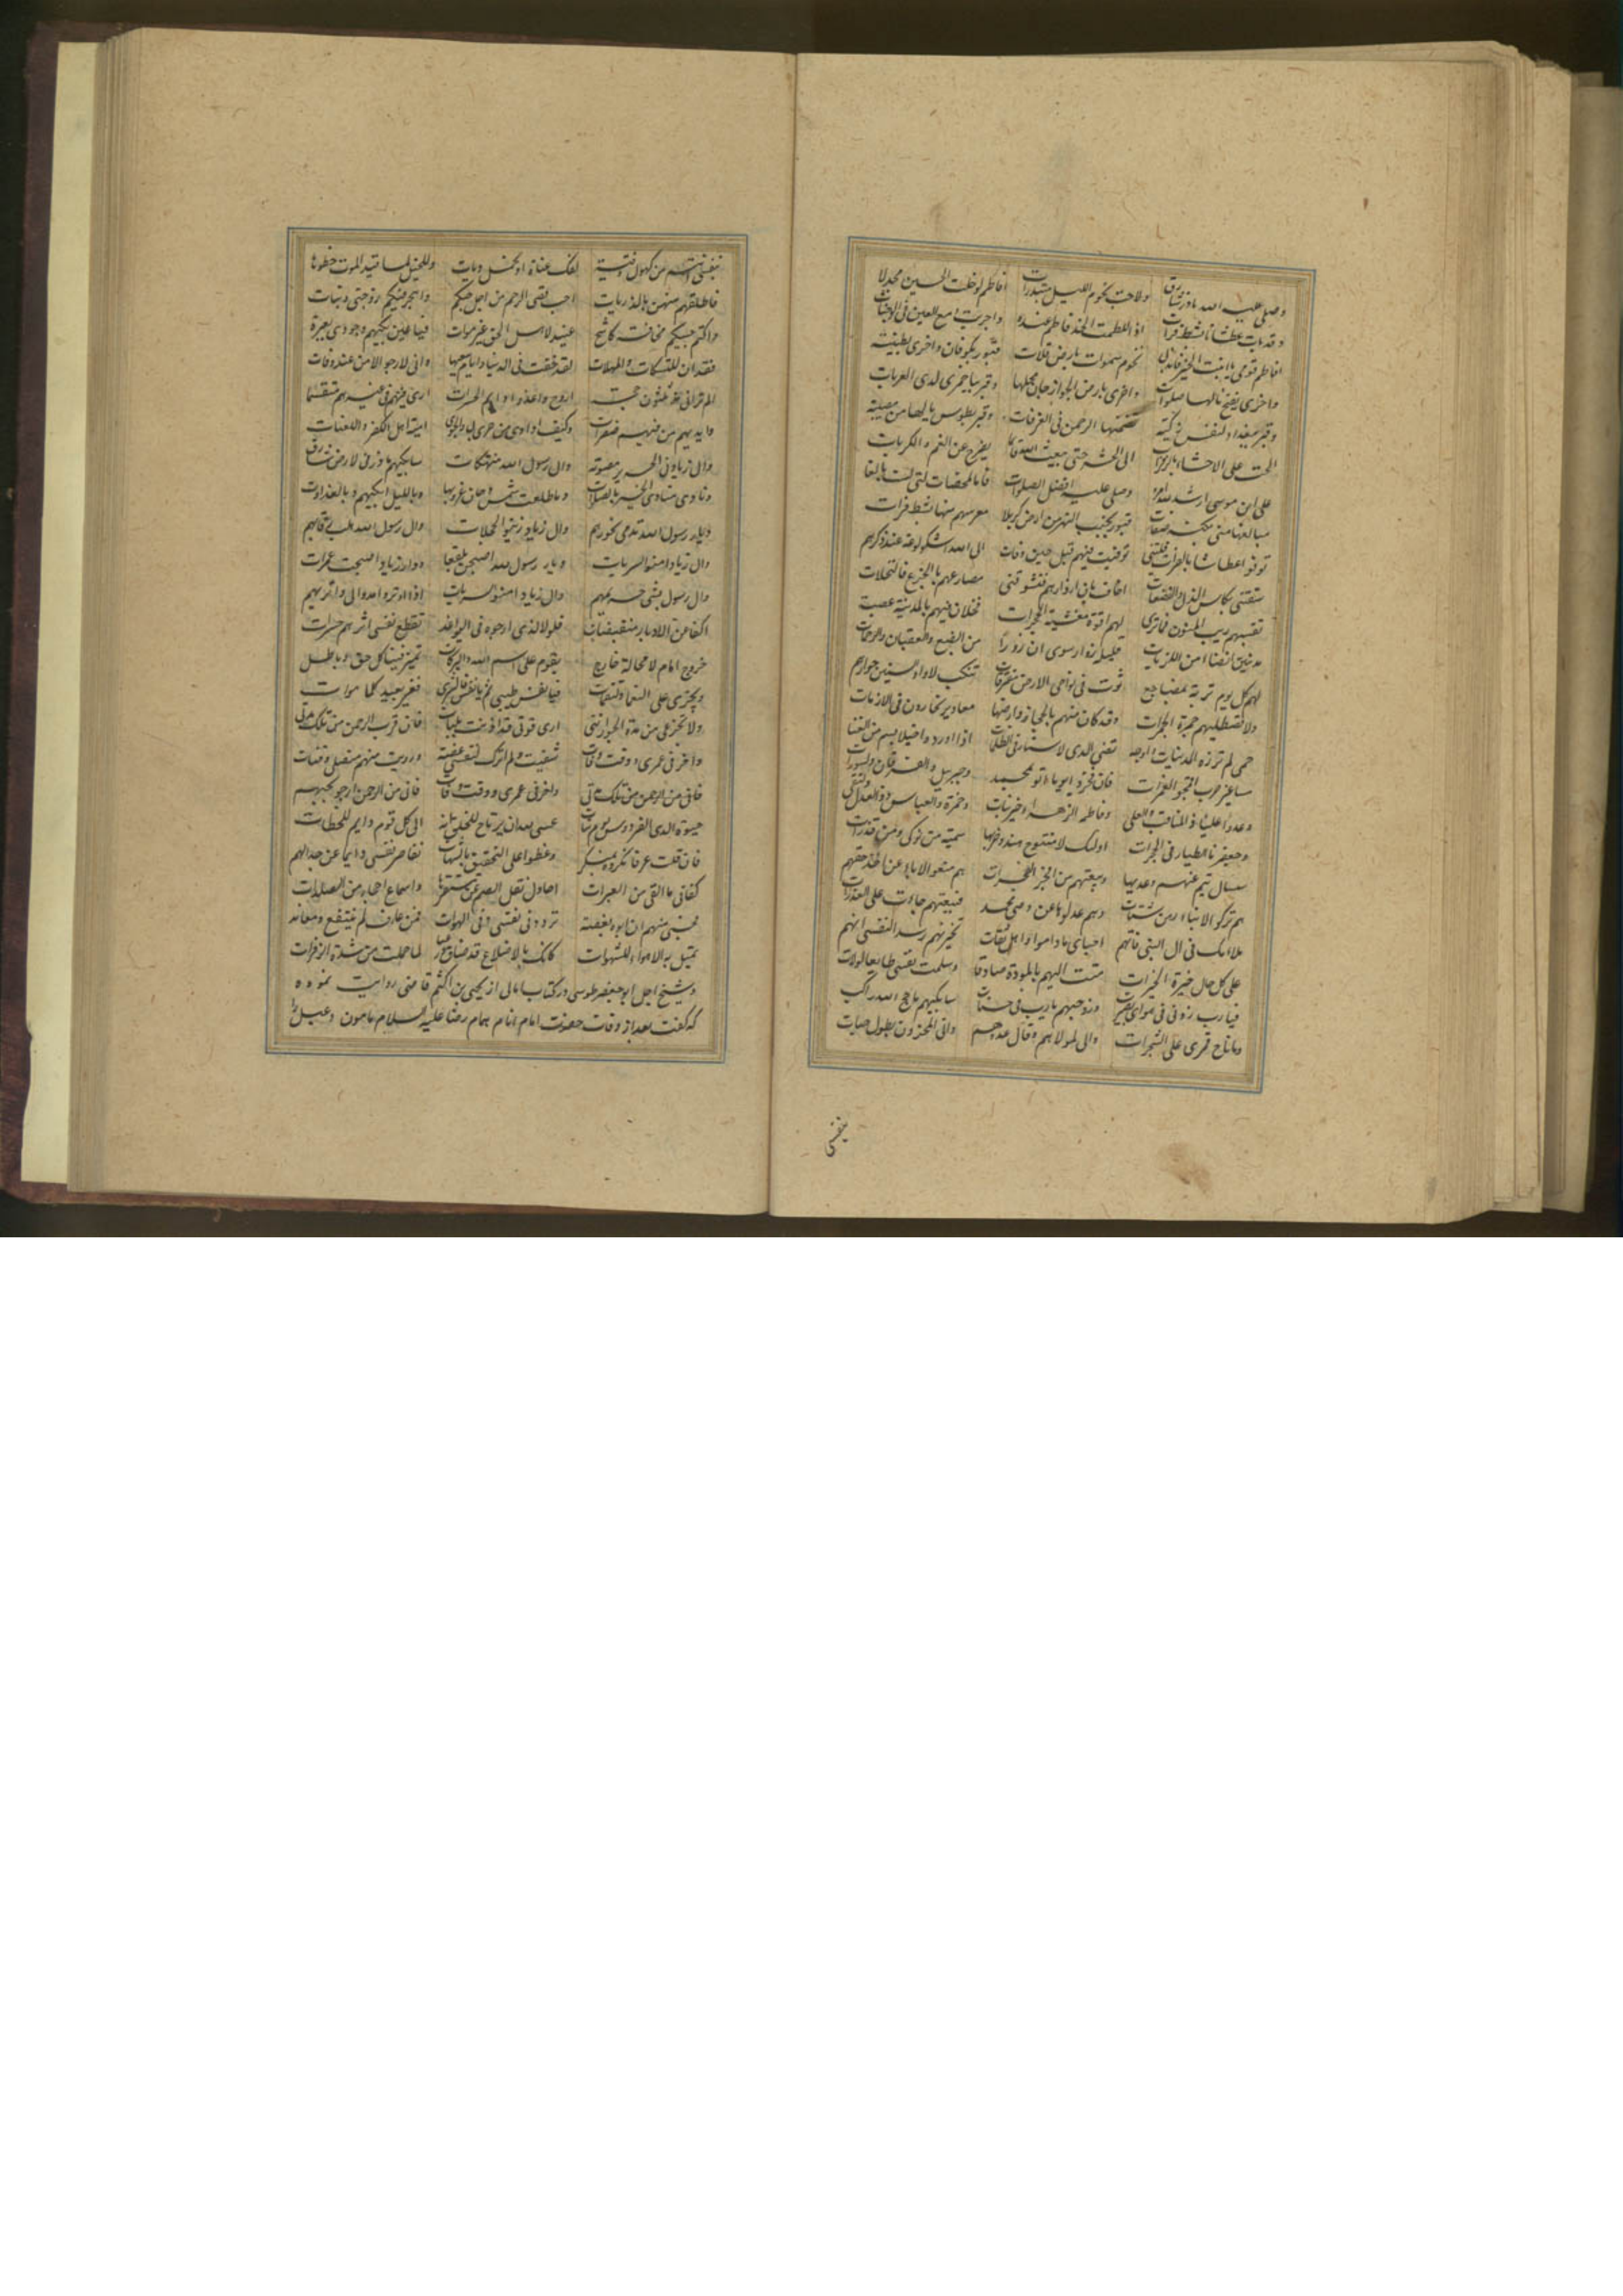 وصلی علیه الله ماذر شارق ولاحت نجوم اللیل مبتدرات افاطم لو خلت الحسین مجدلا
وقد مات عطشانا بشط فرات اذا للطمت الخد فاطم عنده واجریت دمع العین فی الوجنات
افاطم قومی یا ابنت الخیر فاندبی نجوم سموات بارض فلات قبور بکوفان واخری بطیبة
واخری بفخ نالها صلوات واخری بارض الجوزجان محلها وقبر بباخمری لدی العربات
وقبر ببغداد لنفس زکیة تضمنها الرحمن فی الغرفات وقبر بطوس یا لها من مصیبة
الحت علی الاحشاء بالزفرات الی الحشر حتی یبعث الله قائما یفرج عن الغم والکربات
علی ابن موسی ارشد الله امره وصلی علیه افضل الصلوات فاما الممضات لتی لست بالغا
مبالغها منی بکنه صفات قبور بجنب النهر من ارض کربلا معرسهم منها بشط فرات
توفوا عطاشا بالفرات فلیتنی توفیت فیهم قبل حین وفات الی الله اشکو لوعة عند ذکرهم
سقتنی بکاس الذل والفضعات اخاف بان ازدارهم فتشوقنی مصارعهم بالجزع فالنخلات
تقسمهم ریب المنون فما تری لهم عقوة مغشیة الحجرات خلا ان منهم بالمدینة عصبة
مدینین انضاء من اللزبات قلیلة زوار سوی ان زورا من الضبع والعقبان والرخمات
لهم کل یوم تربة بمضاجع ثوت فی نواحی الارض مفترقات تنکب لاواء السنین جوارهم
ولا تصطلیهم جمرة الجمرات وقد کان منهم بالحجاز وارضها مغاویر نحارون فی الازمات
حمی لم تزره المدنیات واوجه تضیء لدی الاستار فی الظلمات اذا اوردوا خیلا بسمر من القنا
مساعیر حرب اقحموا الغمرات فان فخروا یوما اتوا بمحمد وجبریل والفرقان والسورات
وعدوا علیا ذا المناقب والعلی وفاطمة الزهراء خیر بنات وحمزة والعباس ذو العدل والتقی
وجعفرنا الطیار فی الحجرات اولئک لا منتوج هند وحزبها سمیة من نوکی ومن قذرات
ستسال تیم عنهم وعدیها وبیعتهم من افجر الفجرات هم منعوا الاباء عن اخذ حقهم
هم ترکوا الابناء رهن شتات وهم عدلوها عن وصی محمد فبیعتهم جاءت علی الغدرات
ملامک فی ال النبی فانهم احبای ماداموا واهل ثقات تخیرتهم رشدا لنفسی انهم
علی کل حال خیرة الخیرات متت الیهم بالمودة صادقا وسلمت نفسی طایعا لولات
فیارب زدنی فی هوای بصیرة وزد حبهم یارب فی حسنات سابکیهم ما حج لله راکب
وماناح قمری علی الشجرات وانی لمولاهم وقال عدوهم وانی لمحزون بطول حیات
بنفسی
بنفسی انتم من کهول وفتیة لفک عناة او لحمل دیات وللخیل لما قید الموت خطوها
فاطلقتم منهن بالذربات احب قصی الرحم من اجل حبکم واهجر فیکم زوجتی وبنات
واکتم حبیکم مخافة کاشح عنید لاهل الحق غیر موات فیا عین بکیهم وجودی بعبرة
فقد ان للتسکاب والهملات لقد خفت فی الدنیا وایام سعیها وانی لارجو الامن عند وفات
الم ترانی مذ ثلثون حجة اروح واغدو دایم الحسرات اری فیئهم فی غیرهم متقسما
وایدیهم من فیئهم صفرات وکیف اداوی من جوی لی والجوی امیة اهل الکفر واللعنات
وال زیاد فی الحریر مصونة وال رسول الله منهتکات سابکیهم ماذر فی الارض شارق
ونادی منادی الخیر بالصلوات وماطلعت شمس وحان غروبها وباللیل ابکیهم وبالغدوات
دیار رسول الله تدمی نحورهم وال زیاد زینوا الحجلات وال رسول الله یسبی حریمهم
وال زیاد امنوا السربات دیار رسول الله اصبحن بلقعا ودار زیاد اصبحت عمرات
وال رسول یسبی حریمهم وال زیاد امنوا السربات اذا وتروا مدوا الی واتریهم
اکفا عن الاوتار منقبضات فلولا الذی ارجوه فی الیوم او غد تقطع نفسی اثرهم حسرات
خروج امام لا محالة خارج یقوم علی اسم الله والبرکات یمیز فینا کل حق وباطل
ویجزی علی النعماء والنقمات فیا نفس طیبی ثم یا نفس فابشری فغیر بعید کلما هو ات
ولا تجزعی من مدة الجور اننی اری قوتی قد اذنت بثبات فان قرب الرحمن من تلک مدتی
واخر فی عمری ووقت وفات شفیت ولم اترک لنفسی غصة ورویت منهم منصلی وقنات
فانی من الرحمن من تلک مدتی واخر فی عمری ووقت وفات فانی من الرحمن ارجو بحبهم
حیوة لدی الفردوس یوم بتات عسی الله ان یرتاح للخلق انه الی کل قوم دایم للحظات
فان قلت عرفا نکروه بمنکر وغطوا علی التحقیق بالشبهات تقاصر نفسی دایما عن جدالهم
کفانی ما القی من العبرات احاول نقل الصم عن مستقرها واسماع احجار من الصلدات
فحسبی منهم ان ابوء بغصة تردد فی نفسی وفی لهوات فمن عارف لم ینتفع ومعاند
تمیل به الاهواء للشهوات کانک بالاضلاع قد ضاق ذرعها لما حملت من شدة الزفرات
وشیخ اجل ابو جعفر طوسی در کتاب امالی از یحیی بن اکثم قاضی روایت نموده
که گفت بعد از وفات حضرت امام انام همام رضا علیه السلام مامون دعبل را